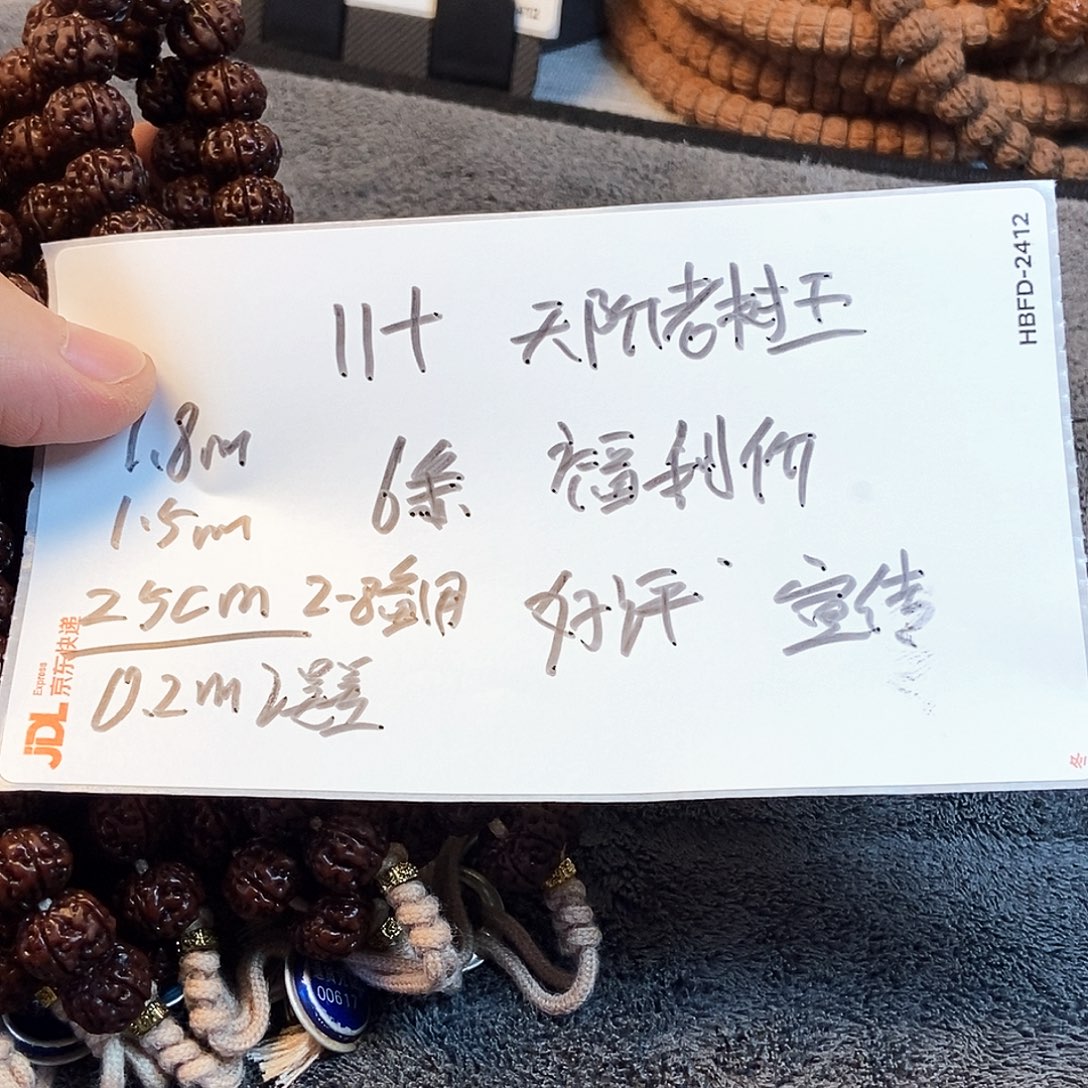 11十 天阶老树王
1.8m 6条 福利价
1.5m
25cm 2-8输用 好评 宣传
0.2m 误差
HBFD-2412
JDL 京东快递
Express
冬
00617